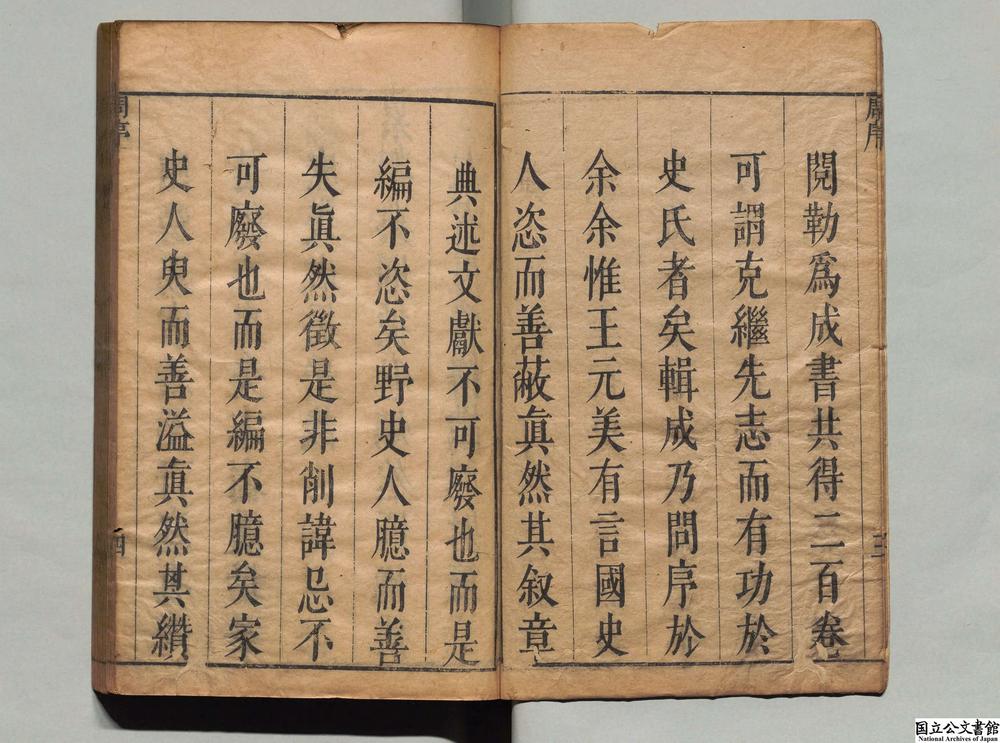 周序
閱勒爲成書共得二百卷
可謂克繼先志而有功於
史氏者矣輯成乃問序於
余余惟王元美有言國史
人恣而善蔽眞然其叙章
典述文獻不可廢也而是
編不恣矣野史人臆而善
失眞然徵是非削諱忌不
可廢也而是編不臆矣家
史人臾而善溢眞然其纘
周序
四
国立公文書館
National Archives of Japan